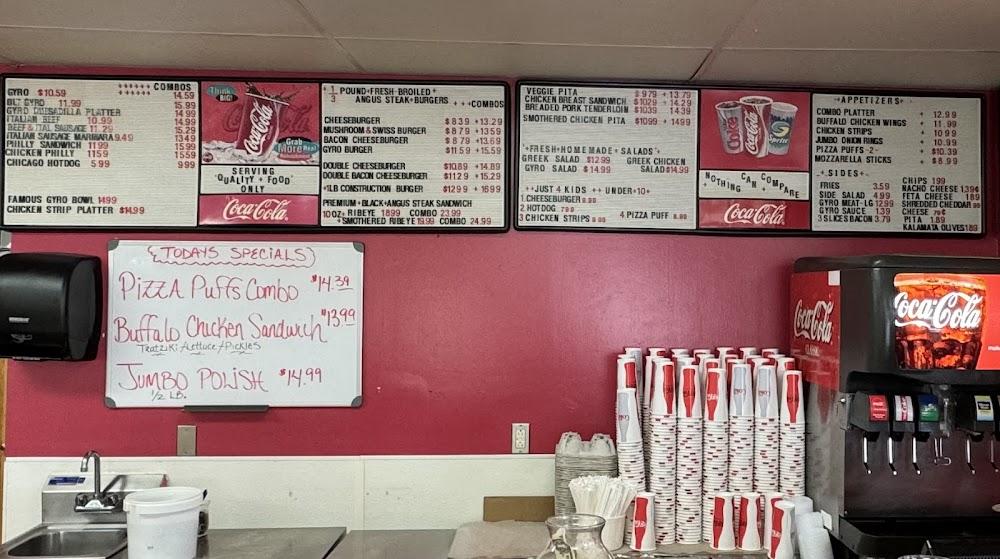 COMBOS
GYRO $10.59 14.59
BLT GYRO 11.99 15.99
GYRO QUISADILLA PLATTER 14.99
ITALIAN BEEF 10.99 14.99
BEEF & ITAL SAUSAGE 11.29 15.29
ITALIAN SAUSAGE MARINARA 9.49 13.49
PHILLY SANDWICH 11.99 15.99
CHICKEN PHILLY 11.59 15.59
CHICAGO HOTDOG 5.99 9.99
FAMOUS GYRO BOWL 14.99
CHICKEN STRIP PLATTER $14.99
Think BIG!
Coca-Cola
Grab More Real
SERVING
"QUALITY + FOOD"
ONLY
Coca-Cola
1/3 POUND+FRESH-BROILED+
ANGUS STEAK+BURGERS +++COMBOS
CHEESEBURGER $8.39 +13.29
MUSHROOM & SWISS BURGER $8.79 +13.59
BACON CHEESEBURGER $8.79 +13.69
GYRO BURGER $11.59 +15.59
DOUBLE CHEESEBURGER $10.89 +14.89
DOUBLE BACON CHEESEBURGER $11.29 +15.29
+1LB CONSTRUCTION BURGER $12.99 +16.99
PREMIUM+BLACK+ANGUS STEAK SANDWICH
10OZ+ RIBEYE 18.99 COMBO 23.99
+SMOTHERED RIBEYE 19.99 COMBO 24.99
VEGGIE PITA $9.79 +13.79
CHICKEN BREAST SANDWICH $10.29 +14.29
BREADED PORK TENDERLOIN $10.39 14.39
SMOTHERED CHICKEN PITA $10.99 +14.99
+FRESH+HOMEMADE+SALADS+
GREEK SALAD $12.99 GREEK CHICKEN
GYRO SALAD $14.99 SALAD $14.99
++JUST 4 KIDS ++ UNDER+10+
1.CHEESEBURGER
2.HOTDOG
3.CHICKEN STRIPS 4.PIZZA PUFF
Coke
Coca-Cola
Sprite
NOTHING CAN COMPARE
Coca-Cola
+APPETIZERS+
COMBO PLATTER + 12.99
BUFFALO CHICKEN WINGS + 11.99
CHICKEN STRIPS + 10.99
JUMBO ONION RINGS + 10.99
PIZZA PUFFS -2- + $10.39
MOZZARELLA STICKS + $8.99
+SIDES+
FRIES 3.59
SIDE SALAD 4.99
GYRO MEAT-LG 12.99
GYRO SAUCE 1.39
3 SLICES BACON 3.79
CHIPS 1.99
NACHO CHEESE 1.39¢
FETA CHEESE 1.89
SHREDDED CHEDDAR
CHEESE 79¢
PITA 1.89
KALAMATA OLIVES 1.89
TODAYS SPECIALS
PIZZA PUFFS COMBO $14.39
Buffalo Chicken Sandwich $13.99
Tzatziki/Lettuce/Pickles
JUMBO POLISH $14.99
1/2 LB.
Coca-Cola
CLASSIC
Coca-Cola